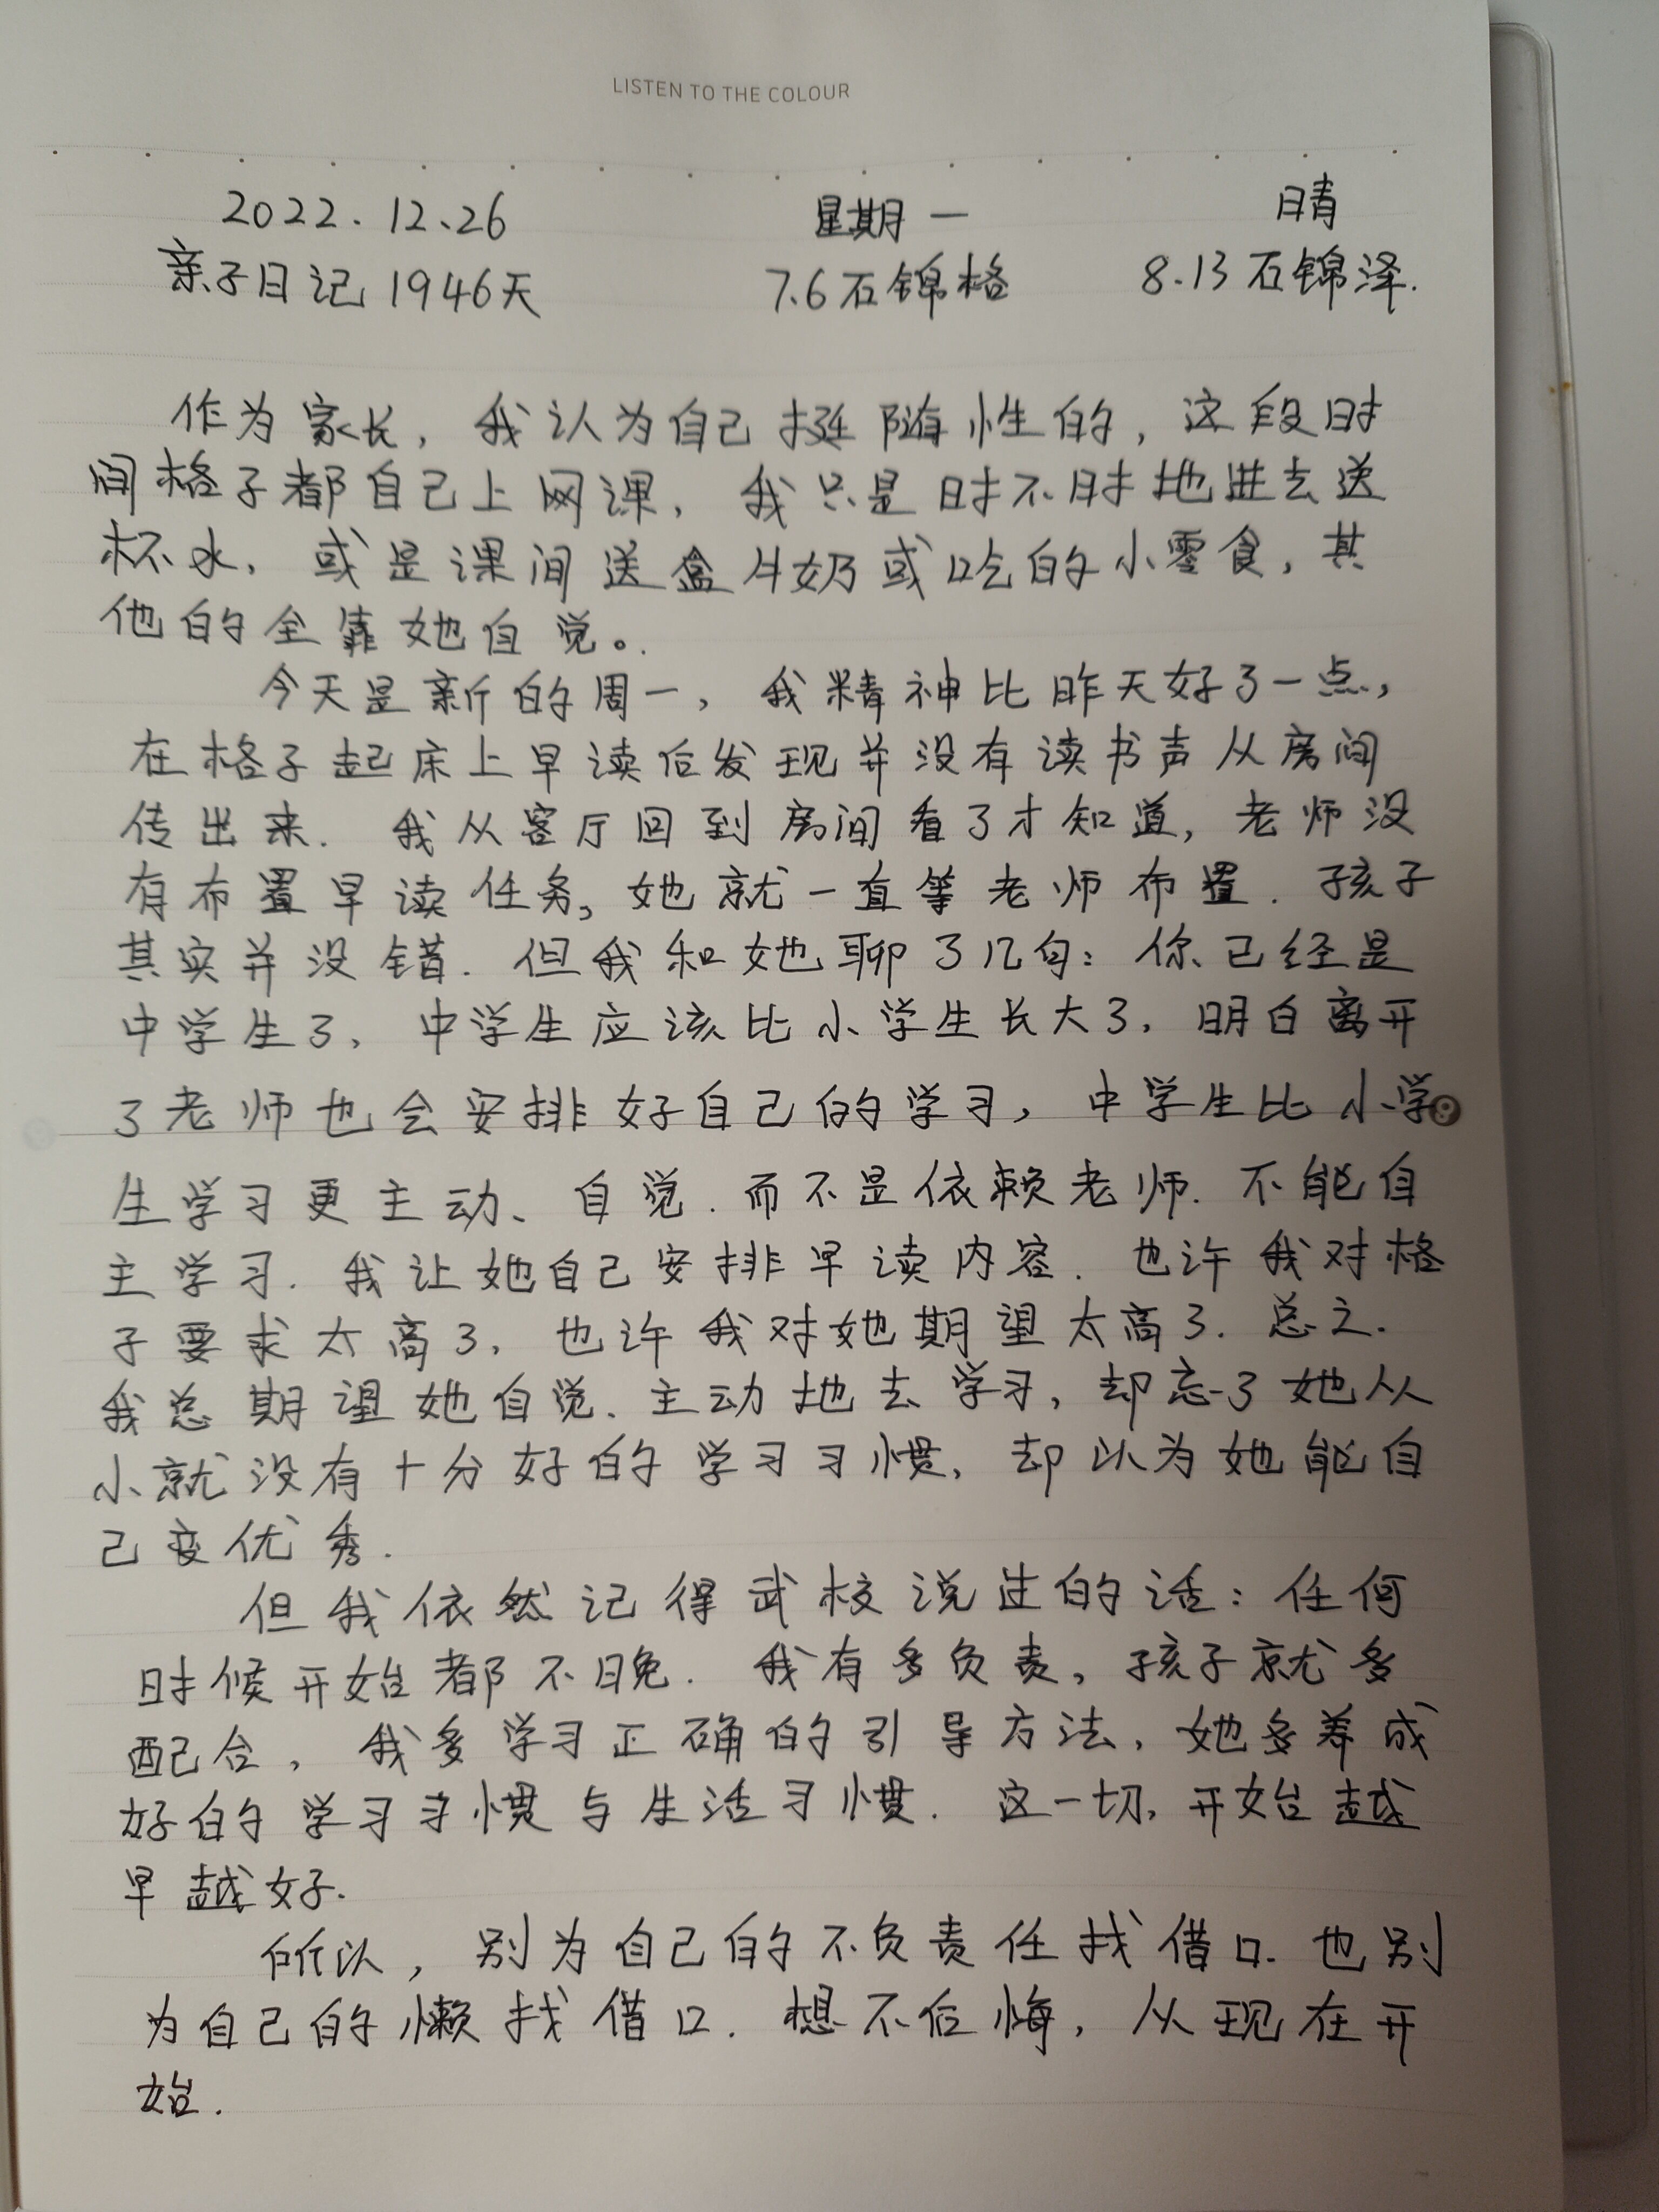 LISTEN TO THE COLOUR
2022.12.26 星期一 晴
亲子日记1946天 7.6石锦格 8.13石锦泽.
作为家长，我认为自己挺随性的，这段时
间格子都自己上网课，我只是时不时地进去送
杯水，或是课间送盒牛奶或吃的小零食，其
他的全靠她自觉。
今天是新的周一，我精神比昨天好了一点，
在格子起床上早读后发现并没有读书声从房间
传出来.我从客厅回到房间看了才知道，老师没
有布置早读任务，她就一直等老师布置.孩子
其实并没错.但我和她聊了几句：你已经是
中学生了，中学生应该比小学生长大了，明白离开
了老师也会安排好自己的学习，中学生比小学
生学习更主动、自觉.而不是依赖老师.不能自
主学习.我让她自己安排早读内容.也许我对格
子要求太高了，也许我对她期望太高了.总之.
我总期望她自觉、主动地去学习，却忘了她从
小就没有十分好的学习习惯，却以为她能自
己变优秀.
但我依然记得武校说过的话：任何
时候开始都不晚.我有多负责，孩子就多
配合，我多学习正确的引导方法，她多养成
好的学习习惯与生活习惯.这一切，开始越
早越好.
所以，别为自己的不负责任找借口.也别
为自己的懒找借口.想不后悔，从现在开
始.